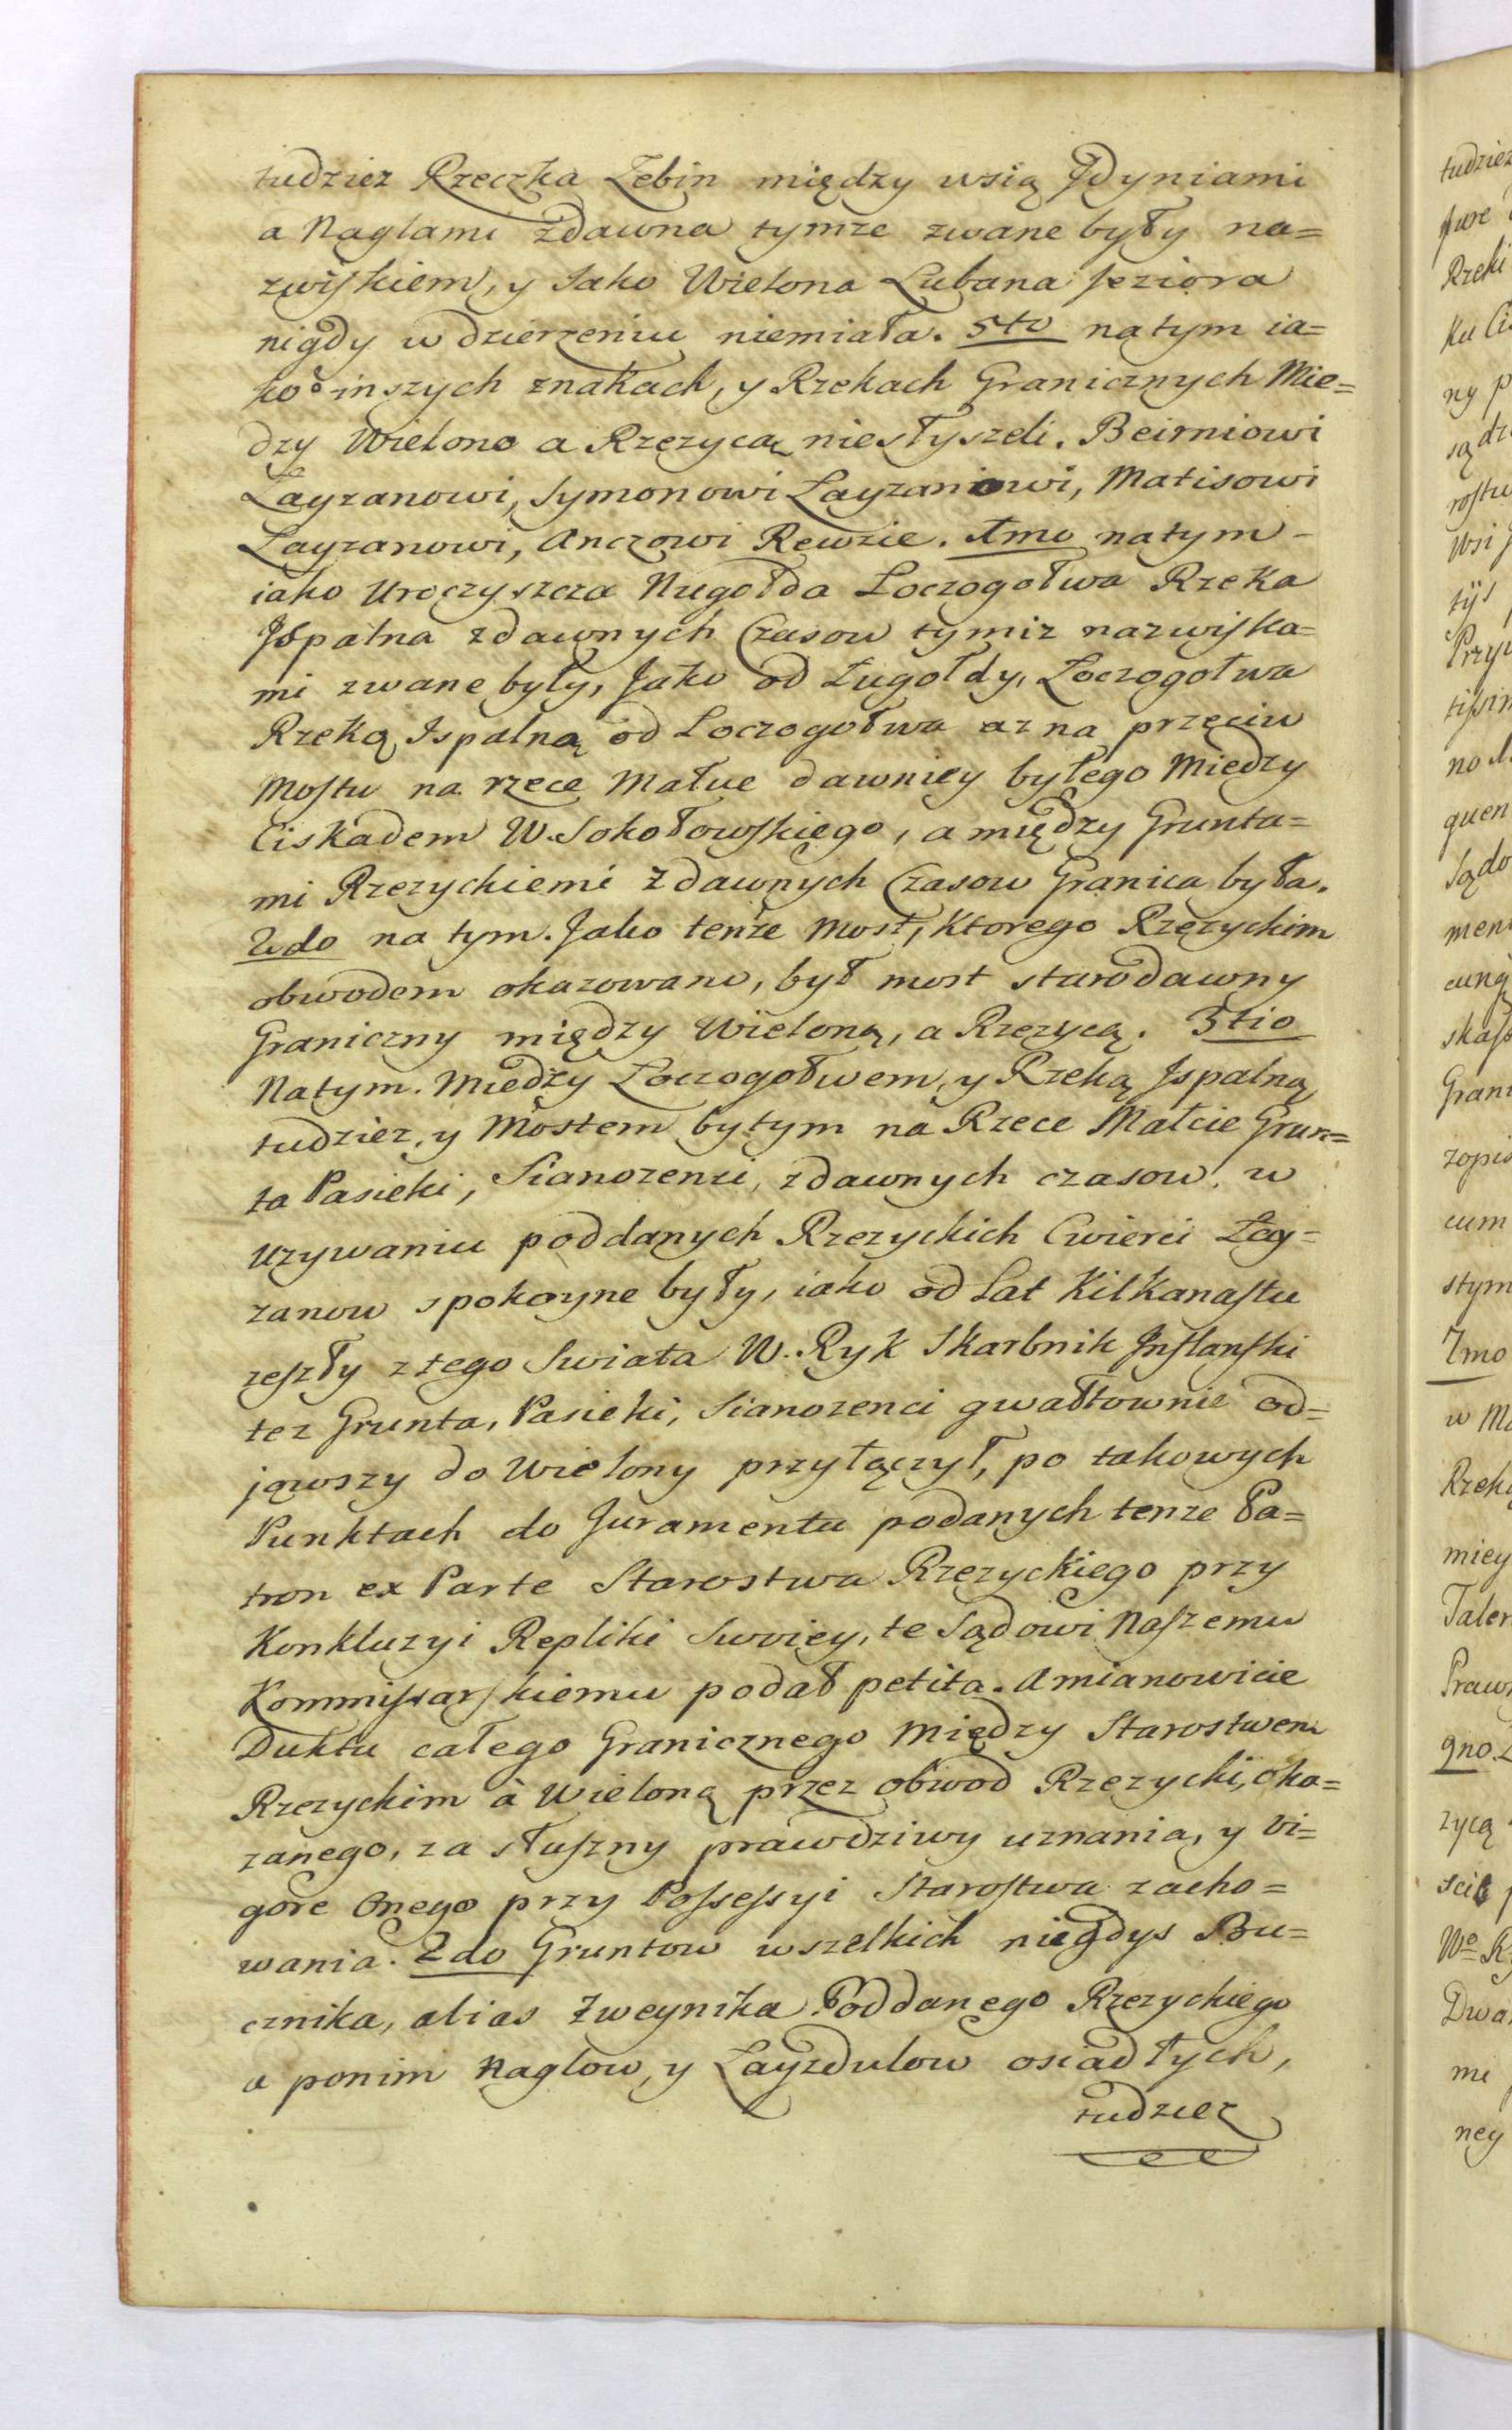 tudziez Rzeczka Zebin między wsią Jdyniami
a Naglami zdawna tymze zwane były na=
zwiskiem, y Jako Wielona Lubana Jeziora
nigdy w dzierzeniu niemiała. 5to na tym ia=
ko o inszych znakach, y Rzekach Granicznych Mie=
dzy Wielono a Rzezycą niesłyszeli. Beirniowi
Layzanowi, Symonowi Layzaniowi, Matisowi
Layzanowi, Anczowi Rewzie. 1mo natym
iako Uroczyszcza Nugołda Loczogołwa Rzeka
Jspalna zdawnych Czasow tymiz nazwiska=
mi zwane były, Jako od Lugołdy, Loczogołwa
Rzeką Ispalną od Loczogołwa az na przeciw
Mostu na rzece Małue dawniey byłego Miedzy
Ciskadem W. Sokołowskiego, a między Grunta=
mi Rzezyckiemi zdawnych Czasow Granica była.
2do na tym. Jako tenze Most, Ktorego Rzęzyckim
obwodem okazowano, był most starodawny
Graniczny między Wieloną, a Rzezycą. 3tio
Natym. Miedzy Loczogołwem, y Rzeką Jspalną
tudziez, y Mostem byłym na Rzece Małcie Grun=
ta Pasieki, Sianozenci, zdawnych czasow, w
uzywaniu poddanych Rzezyckich Cwierci Lay=
zanow spokoyne były, iako od Lat Kilkanastu
zeszły z tego Swiata W. Ryk Skarbnik Jnflanski
tez Grunta, Pasieki, Sianozenci gwałtownie od=
jąwszy do Wielony przyłączył, po takowych
Punktach do Juramentu podanych tenze Pa=
tron ex Parte Starostwa Rzezyckiego przy
Konkluzyi Repliki Swoiey, te Sądowi Naszemu
Kommissarskiemu podał petita. Amianowicie
Duktu całego Granicznego Między Starostwem
Rzezyckim à Wieloną przez obwod Rzezycki, oka=
zanego, za słuszny prawdziwy uznania, y vi=
gore Onego przy Possessyi Starostwa zacho=
wania. 2do Gruntow wszelkich niegdys Bu=
cznika, alias Zweynika Poddanego Rzezyckiego
a ponim Naglow, y Layzdulow osiadłych,
tudziez